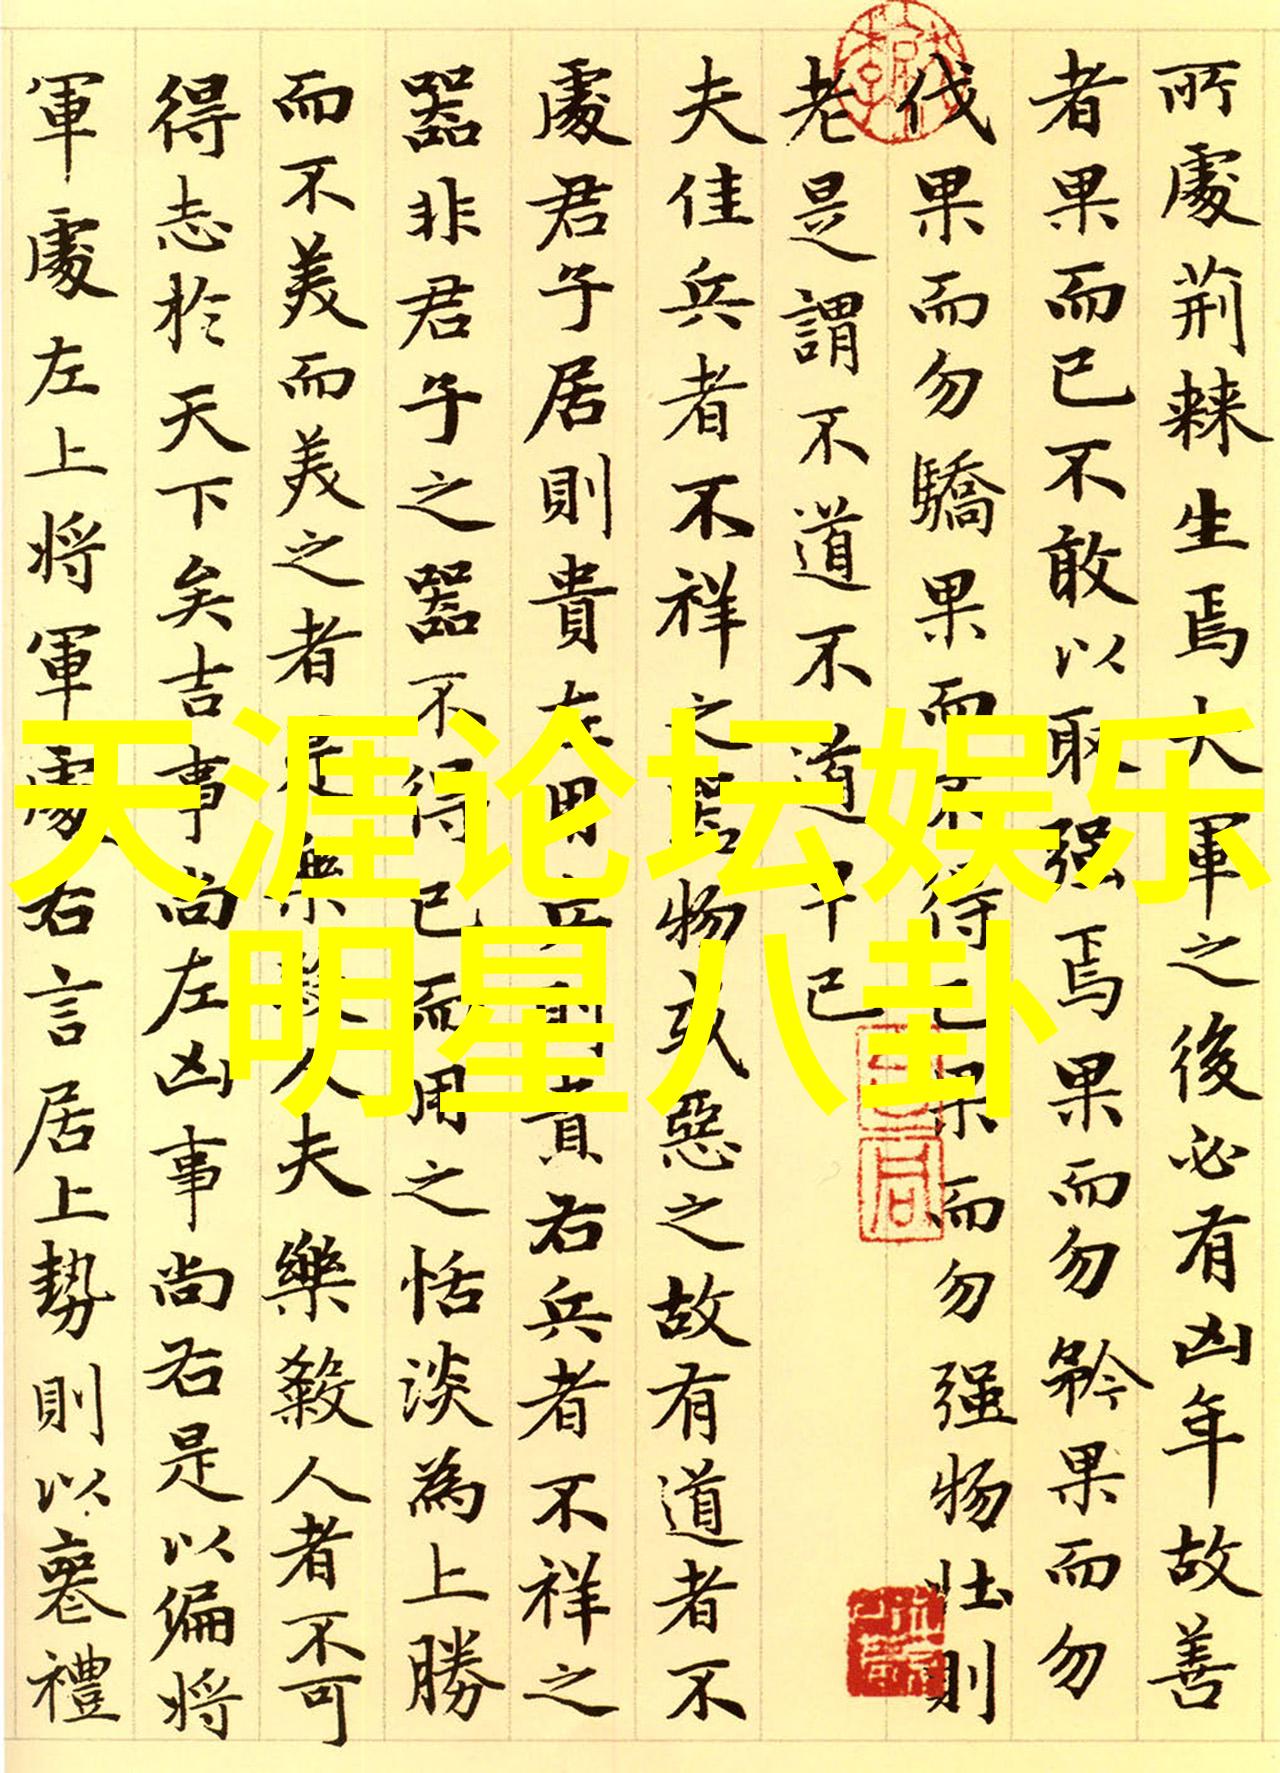 所處荊棘生焉大軍之後必有凶年故善
者果而已不敢以取强焉果而勿矜果而勿
伐果而勿驕果而不得已果而勿强物壯則
老是謂不道不道早已
夫佳兵者不祥之器物或惡之故有道者不
處君子居則貴左用兵則貴右兵者不祥之
器非君子之器不得已而用之恬淡為上勝
而不美而美之者是樂殺人夫樂殺人者不可
得志於天下矣吉事尚左凶事尚右是以偏將
軍處左上將軍處右言居上勢則以喪禮
天涯论坛娱乐
明星八卦